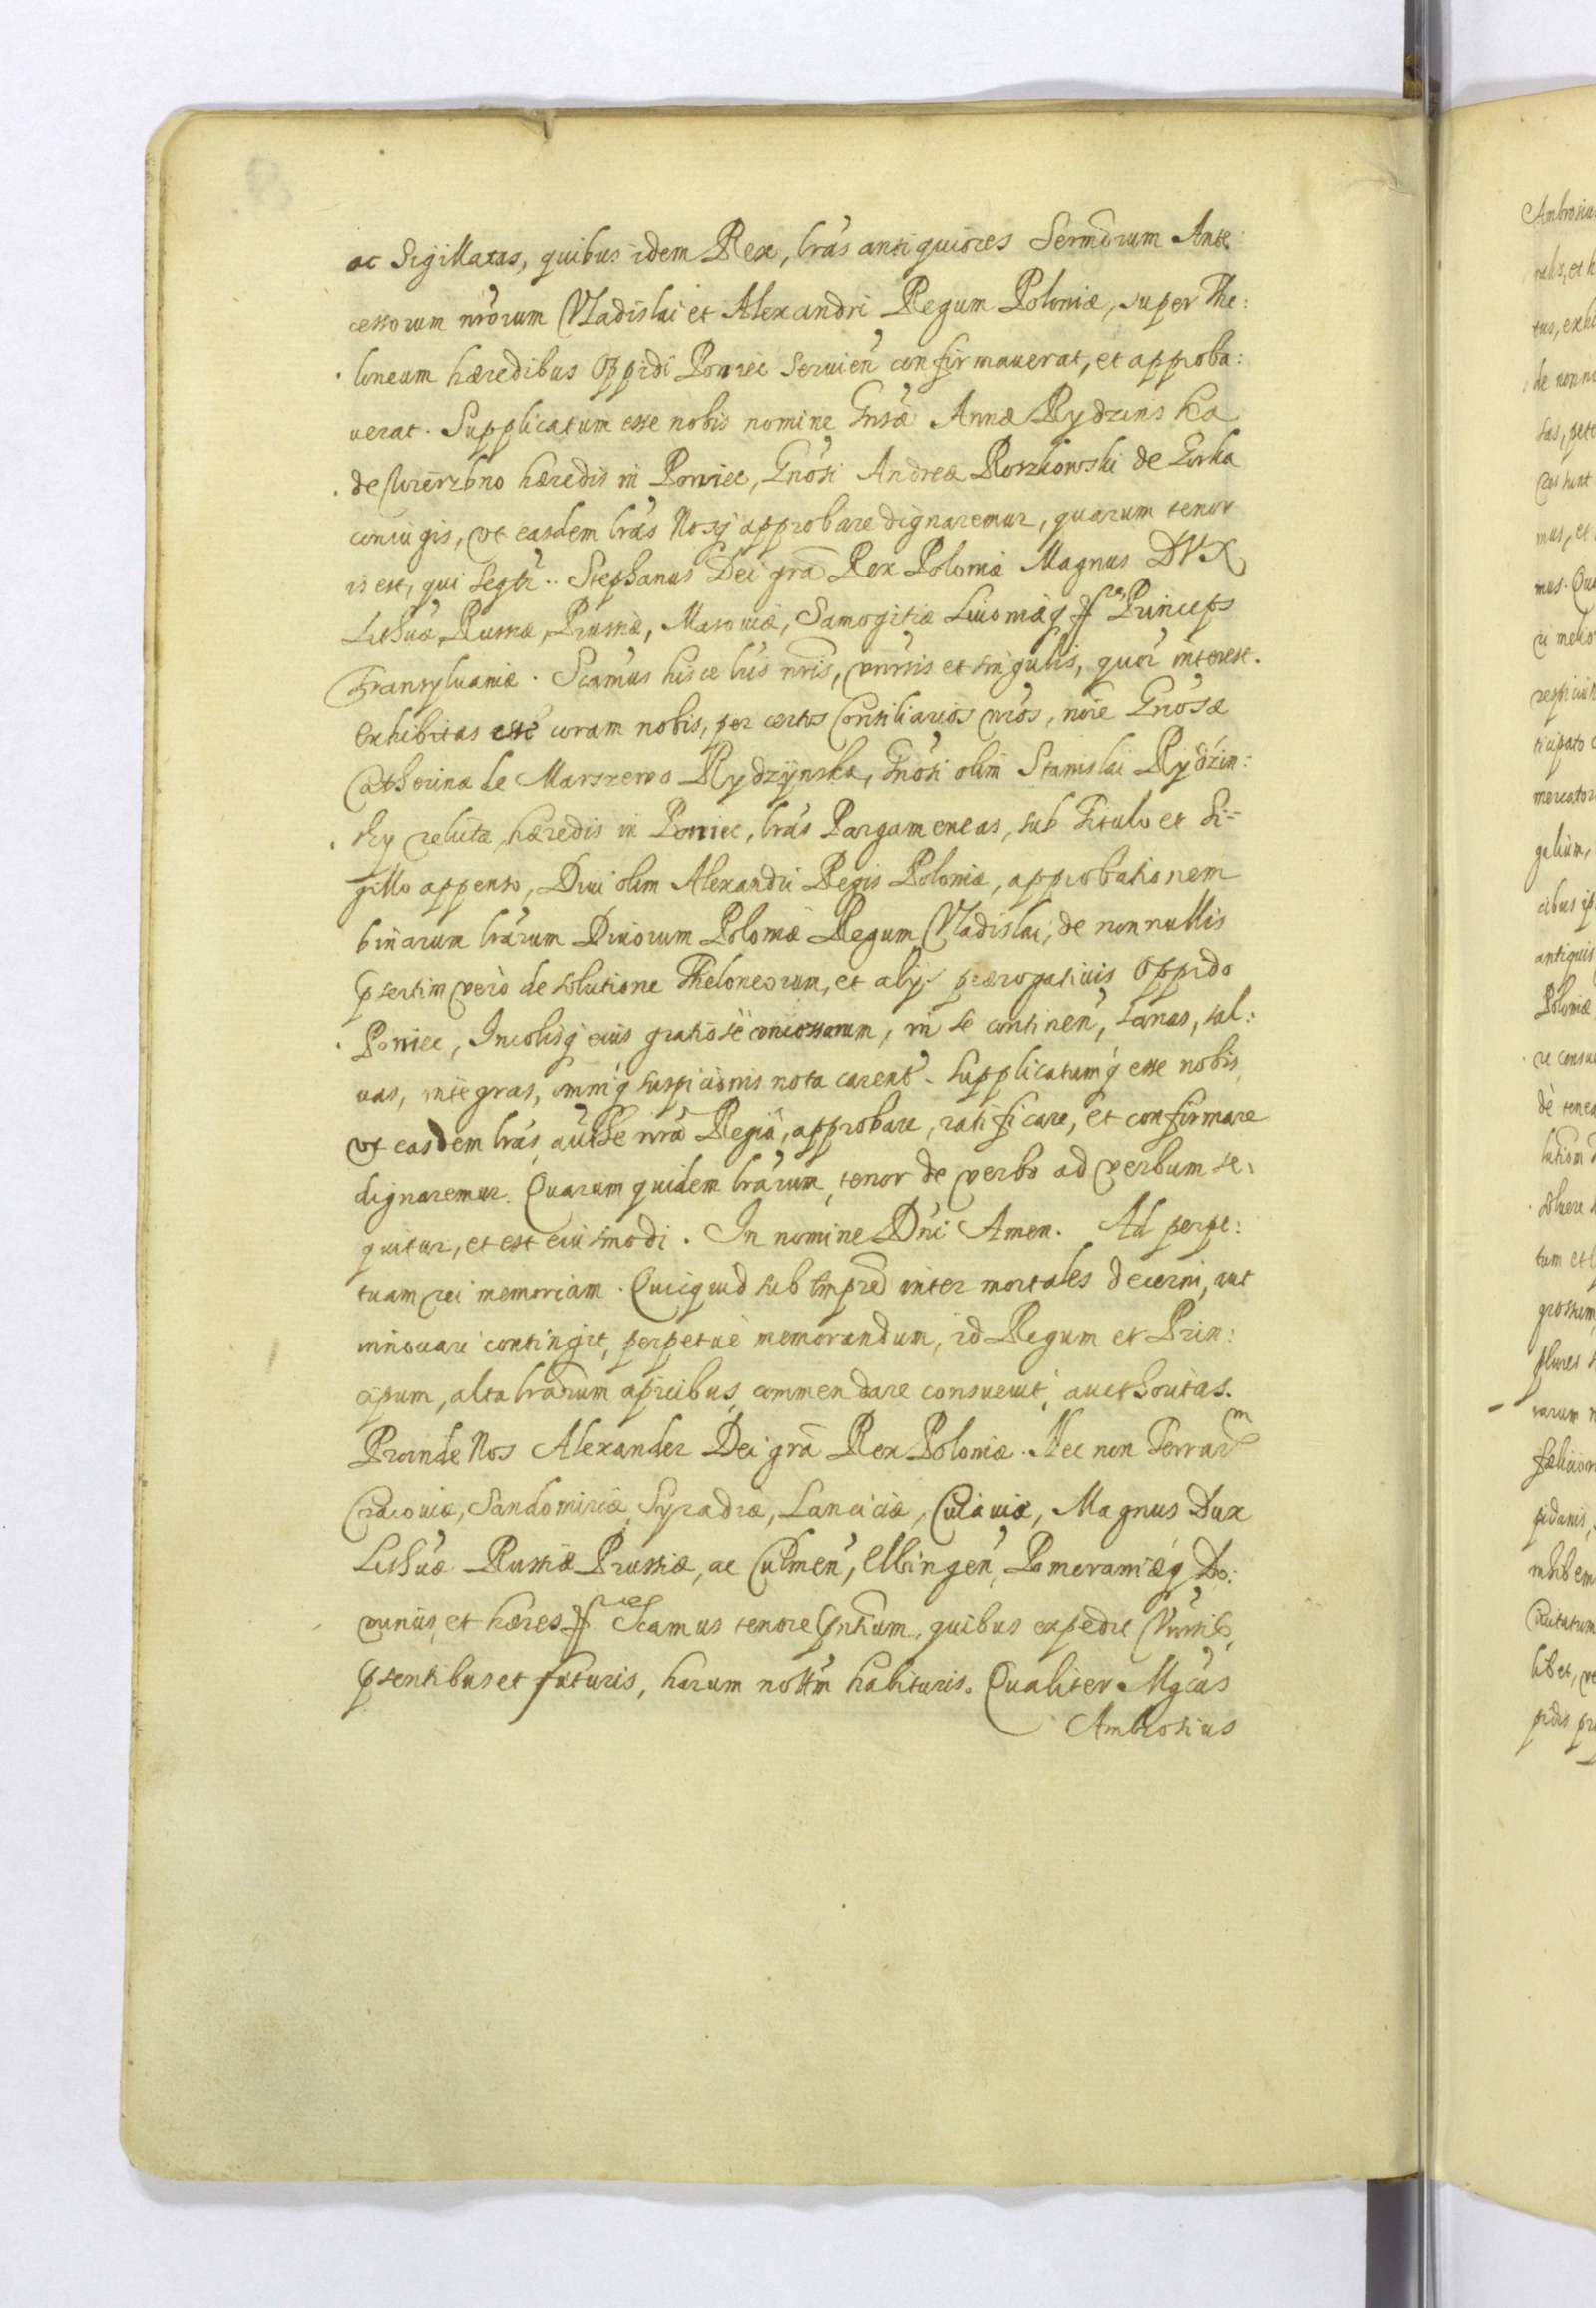 ac Sigillatas, quibus idem Rex, lras antiquiores Sermorum Ante:
cessorum nrorum Vladislai et Alexandri Regum Poloniæ, super The:
loneum hæredibus Oppidi Poniec Seruien confirmauerat, et approba:
uerat. Supplicatum esse nobis nomine Gnsæ Annæ Rydzinska
de Wierzbno hæredis in Poniec, Gnosi Andreæ Roszkowski de Gorka
coniugis, vt easdem lras Nosq approbare dignaremur, quarum tenor
is est, qui seqtr.. Stephanus Dei gra Rex Poloniæ Magnus DVX
Lithuæ, Russiæ, Prussiæ, Masouiæ, Samogitiæ Liuoniæq Princeps
Transyluaniæ. Scamus hisce lris nris, vnrsis et singulis, quor interest.
Exhibitas esse coram nobis, per certos Consiliarios nros, noie Gnosæ
Catherinæ de Marszewo Rydzynska, Gnosi olim Stanislai Rydzin:
sky relictæ, hæredis in Poniec, lras Pargameneas, sub Titulo et Si=
gillo appenso, Diui olim Alexandri Regis Poloniæ, approbationem
binarum lrarum Diuorum Poloniæ Regum Vladislai, de nonnullis
psertim verò de solutione Theloneorum, et alijs prærogatiuis Oppido
Poniec, Incolisq eius gratiose concessarum, in se continen, sanas, sal:
uas, integras, omniq suspicionis nota carent. Supplicatumq esse nobis,
vt easdem lras authe nra Regia, approbare, ratificare, et confirmare
dignaremur. Quarum quidem lrarum, tenor de verbo ad verbum se:
quitur, et est eiusmodi. In nomine Dni Amen. Ad perpe:
tuam rei memoriam. Quicquid sub inter mortales decerni, aut
innouari contingit, perpetuè memorandum, id Regum et Prin:
cipum, alta lrarum apicibus, commendare consueuit, aucthoritas.
Proinde Nos Alexander Dei gra Rex Poloniæ. Nec non Terrarm
Cracouiæ, Sandomiriæ, Syradiæ, Lanciciæ, Cuiauiæ, Magnus Dux
Lithuæ Russiæ Prussiæ, ac Culmen, Elbingen, Pomeraniæq Do:
minus, et hæres Scamus tenore pntium, quibus expedit
psentibus et futuris, harum nottm habituris. Qualiter Mgcus
Ambrosius